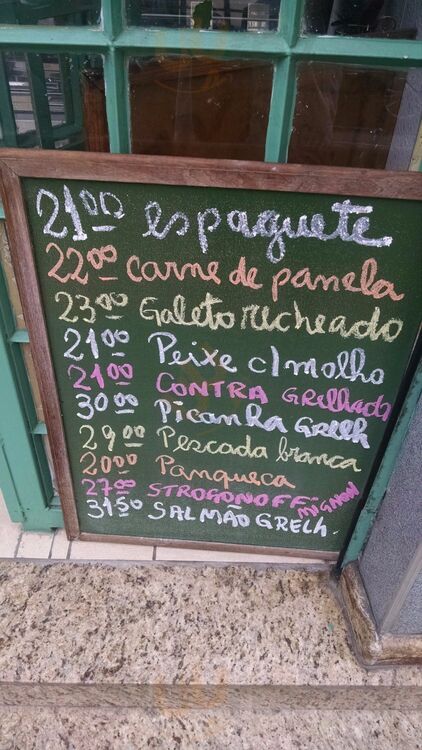 21,00 espaguete
22,00 carne de panela
23,00 Galeto recheado
21,00 Peixe c/ molho
21,00 CONTRA GRELhado
30,00 Picanha Grelh
29,00 Pescada branca
20,00 Panqueca
27,00 STROGONOFF MIGNON
31,50 SALMÃO GRELh.